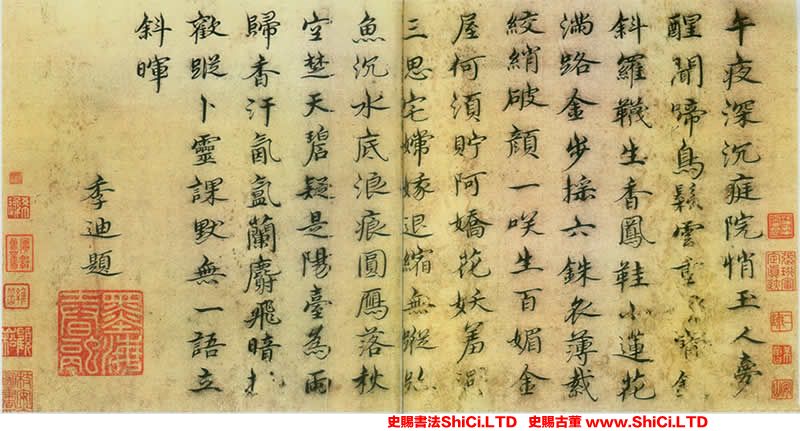 午夜深沉庭院悄玉人夢
醒聞啼鳥鬆雲重
斜羅韈生香鳳鞋小蓮花
滿路金步搖六銖衣薄裁
絞綃破顏一咲生百媚金
屋何須貯阿嬌花妖羞
三思宅嫦娥退縮無蹤
魚沉水底浪痕圓鴈落秋
空楚天碧疑是陽臺為雨
歸香汗氤氳蘭麝飛暗
歡蹤卜靈課默無一語立
斜暉
季迪題
史賜書法ShiCi.LTD 史賜古董 www.ShiCi.LTD